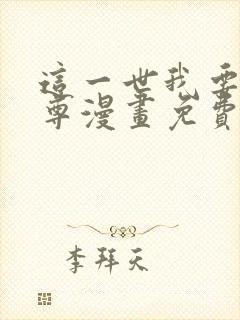 這一世我要
尊漫畫免費
李拜天